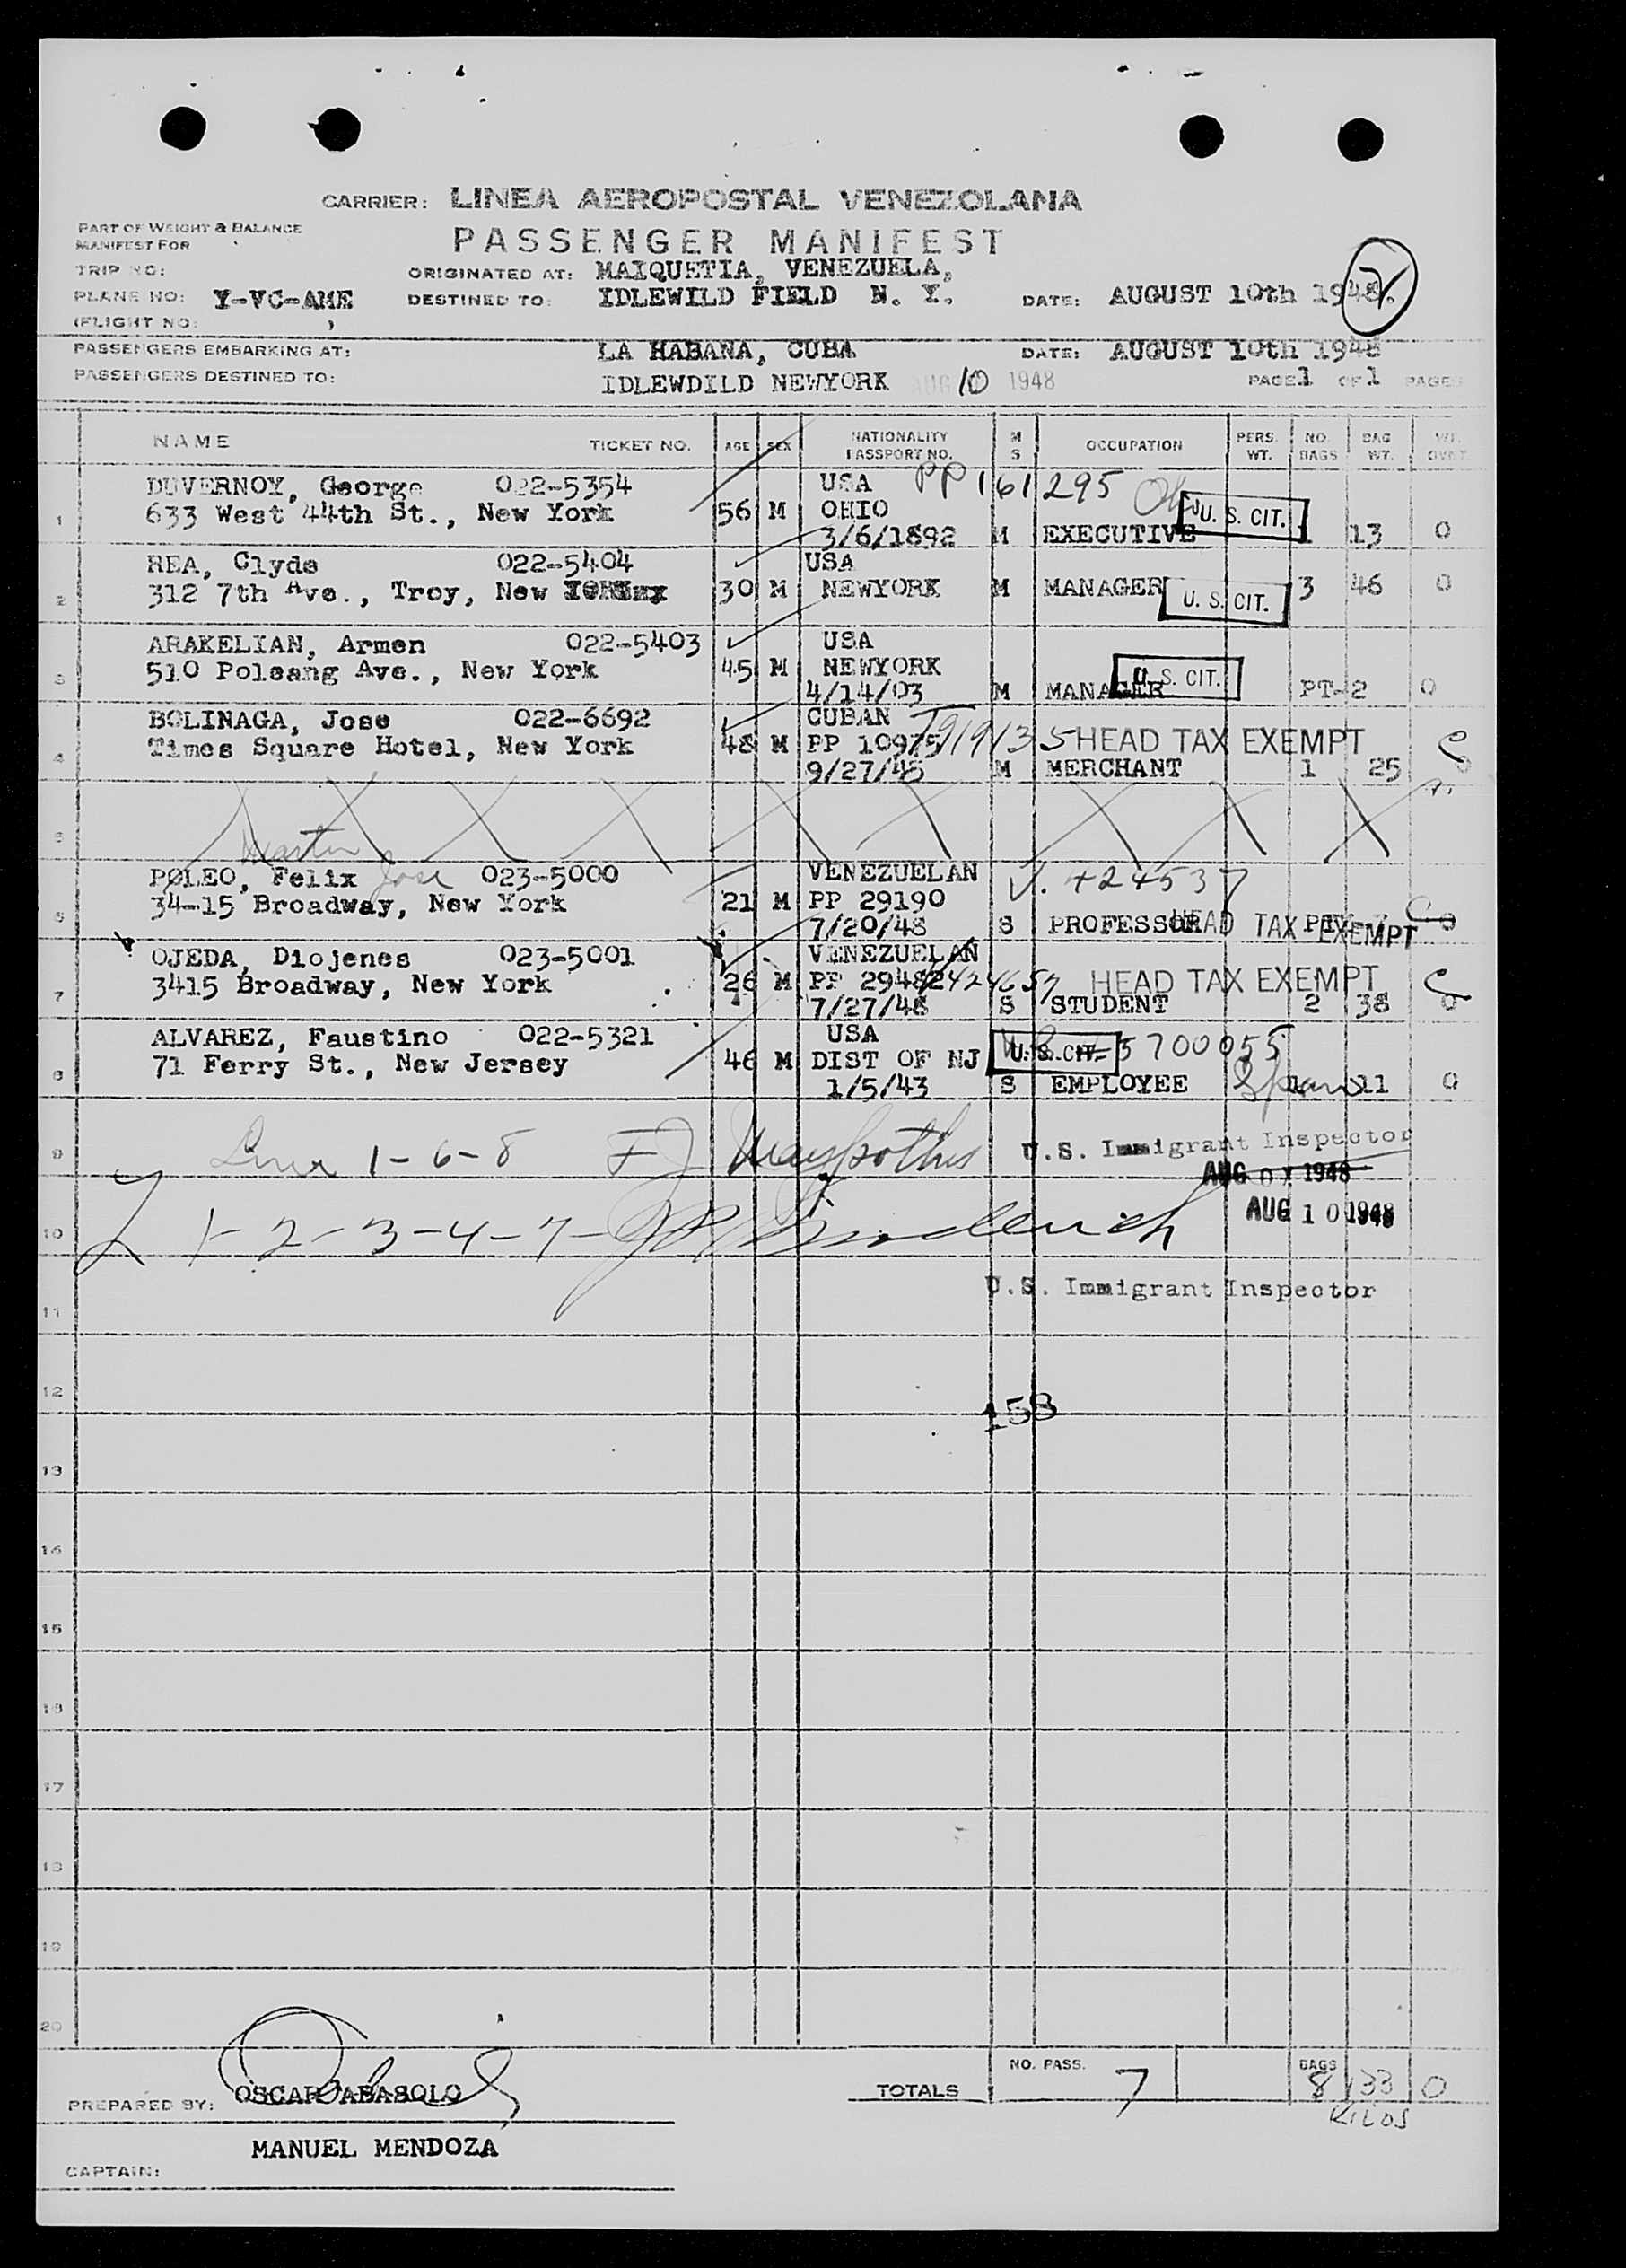 CARRIER: LINEA AEROPOSTAL VENEZOLANA
PART OF WEIGHT & BALANCE
MANIFEST FOR
PASSENGER MANIFEST
TRIP NO:
ORIGINATED AT: MAIQUETIA, VENEZUELA,
PLANE NO: Y-VC-AME
DESTINED TO: IDLEWILD FIELD N. Y.
DATE: AUGUST 10th 1948.
(FLIGHT NO: )
PASSENGERS EMBARKING AT: LA HABANA, CUBA
DATE: AUGUST 10th 1948
PASSENGERS DESTINED TO: IDLEWDILD NEWYORK AUG 10 1948
PAGE 1 OF 1 PAGES
NAME TICKET NO. AGE SEX NATIONALITY PASSPORT NO. M S OCCUPATION PERS. WT. NO. BAGS BAG WT. WT.
DUVERNOY, George 022-5354 USA PP 161295
1 633 West 44th St., New York 56 M OHIO U. S. CIT.
3/6/1892 M EXECUTIVE 1 13 0
REA, Clyde 022-5404 USA
2 312 7th Ave., Troy, New 30 M NEWYORK M MANAGER U. S. CIT. 3 46 0
ARAKELIAN, Armen 022-5403 USA
3 510 Poleang Ave., New York 45 M NEWYORK U. S. CIT.
4/14/03 M MANAGER PT-2 0
BOLINAGA, Jose 022-6692 CUBAN
4 Times Square Hotel, New York 48 M PP 10975 HEAD TAX EXEMPT
9/27/48 M MERCHANT 1 25 0
5
Martin
POLEO, Felix Jose 023-5000 VENEZUELAN V. 424537
6 34-15 Broadway, New York 21 M PP 29190
7/20/48 S PROFESSOR HEAD TAX EXEMPT 0
OJEDA, Diojenes 023-5001 VENEZUELAN
7 3415 Broadway, New York 26 M PP 29482 HEAD TAX EXEMPT
7/27/48 S STUDENT 2 38 0
ALVAREZ, Faustino 022-5321 USA U. S. CIT. 5700055
8 71 Ferry St., New Jersey 46 M DIST OF NJ
1/5/43 S EMPLOYEE 11 0
9 1-6-8 U.S. Immigrant Inspector
AUG 1948
10 1-2-3-4-7- AUG 10 1948
U.S. Immigrant Inspector
11
12
158
13
14
15
16
17
18
19
20
NO. PASS. 7
TOTALS
BAGS 8 133 0
KILOS
PREPARED BY: OSCAR ABASOLO
MANUEL MENDOZA
CAPTAIN: